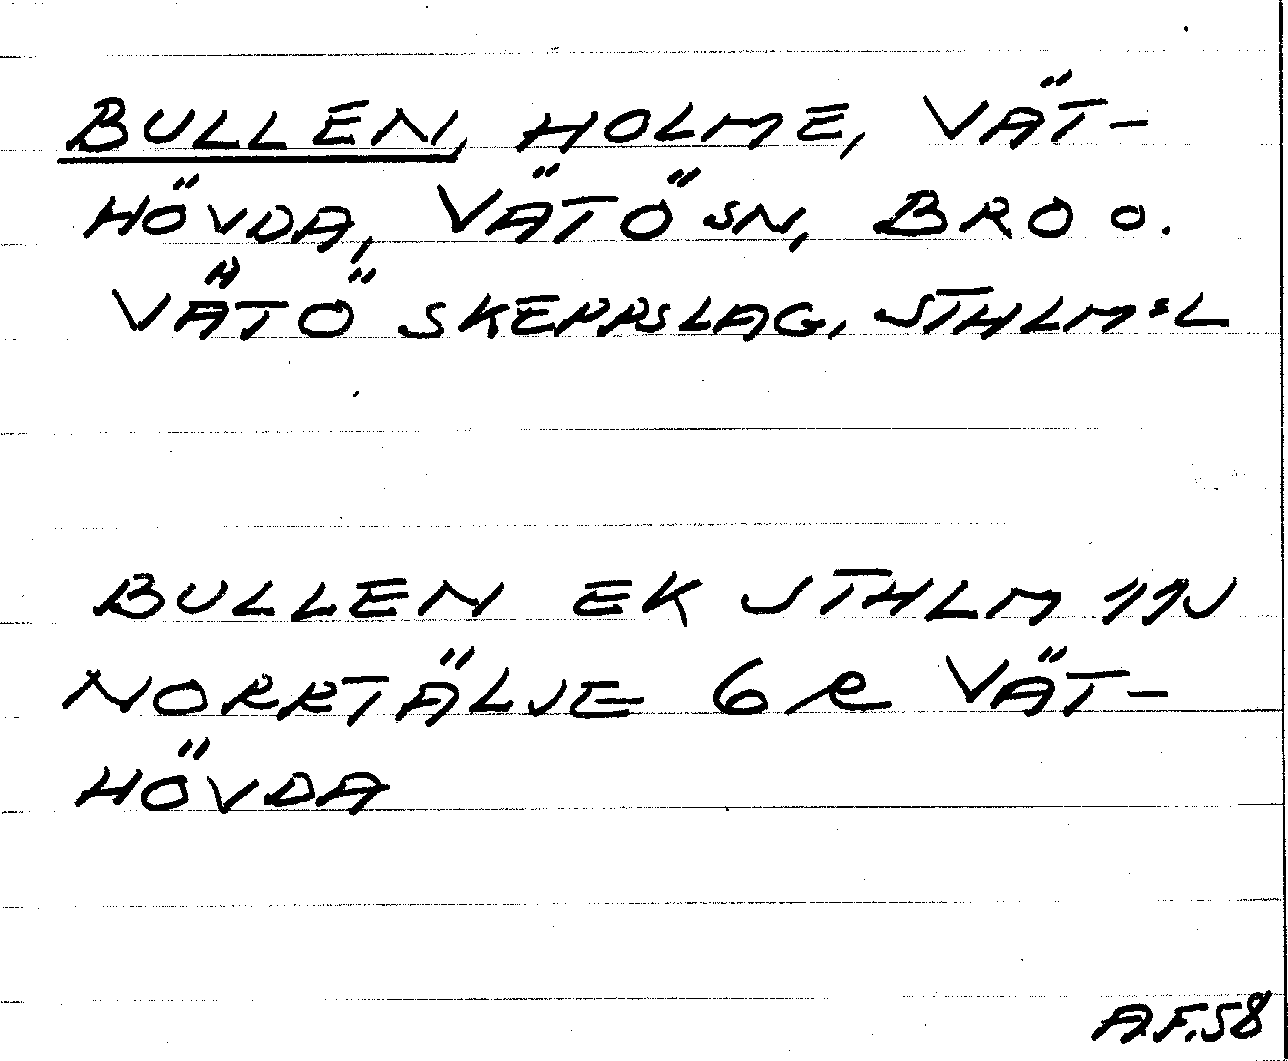 BULLEN, HOLME, VÄT-
HÖVDA, VÄTÖ SN, BRO O.
VÄTÖ SKEPPSLAG, STHLMS L
BULLEN EK STHLM 11J
NORRTÄLJE 6 R VÄT-
HÖVDA
A.F.58